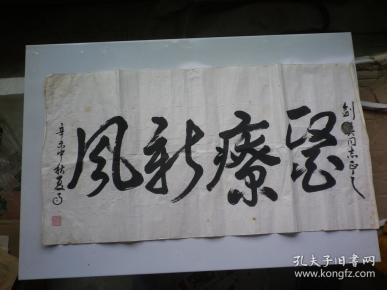 剑英同志正之
医疗新风
辛未中秋夏〇
孔夫子旧书网
www.kongfz.com